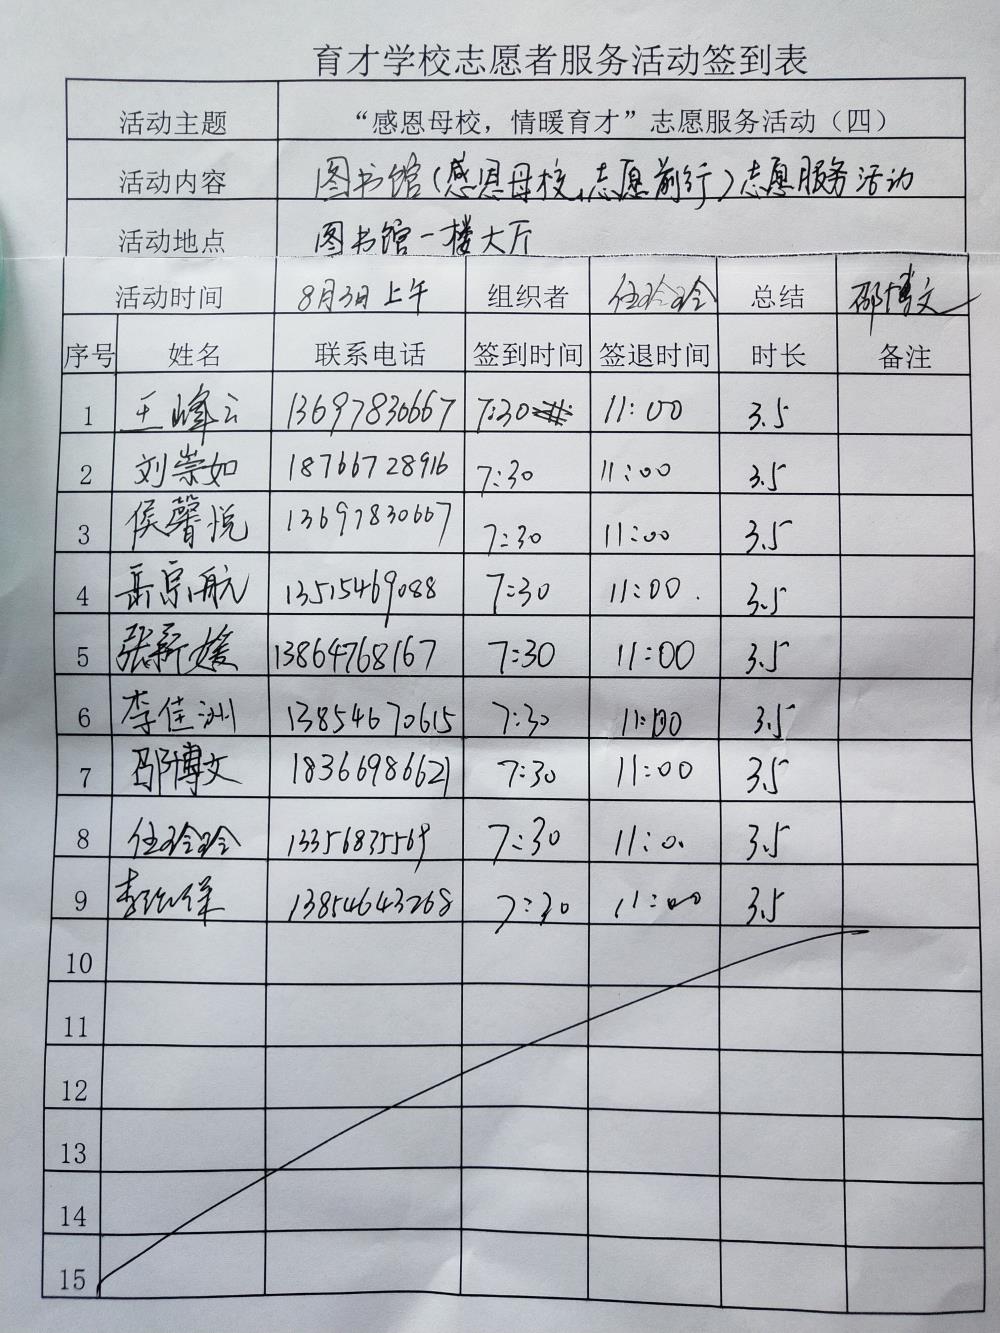 育才学校志愿者服务活动签到表
活动主题 “感恩母校，情暖育才”志愿服务活动（四）
活动内容 图书馆(感恩母校,志愿前行)志愿服务活动
活动地点 图书馆一楼大厅
活动时间 8月3日上午 组织者 任玲玲 总结 邵博文
序号 姓名 联系电话 签到时间 签退时间 时长 备注
1 王峰云 13697830667 7:30 11:00 3.5
2 刘崇如 18766728916 7:30 11:00 3.5
3 侯馨悦 13697830667 7:30 11:00 3.5
4 岳宗航 13515469088 7:30 11:00. 3.5
5 张新媛 13864768167 7:30 11:00 3.5
6 李佳洲 13854670615 7:30 11:00 3.5
7 邵博文 18366986621 7:30 11:00 3.5
8 任玲玲 13356835569 7:30 11:0. 3.5
9 13854643268 7:30 11:00 3.5
10
11
12
13
14
15